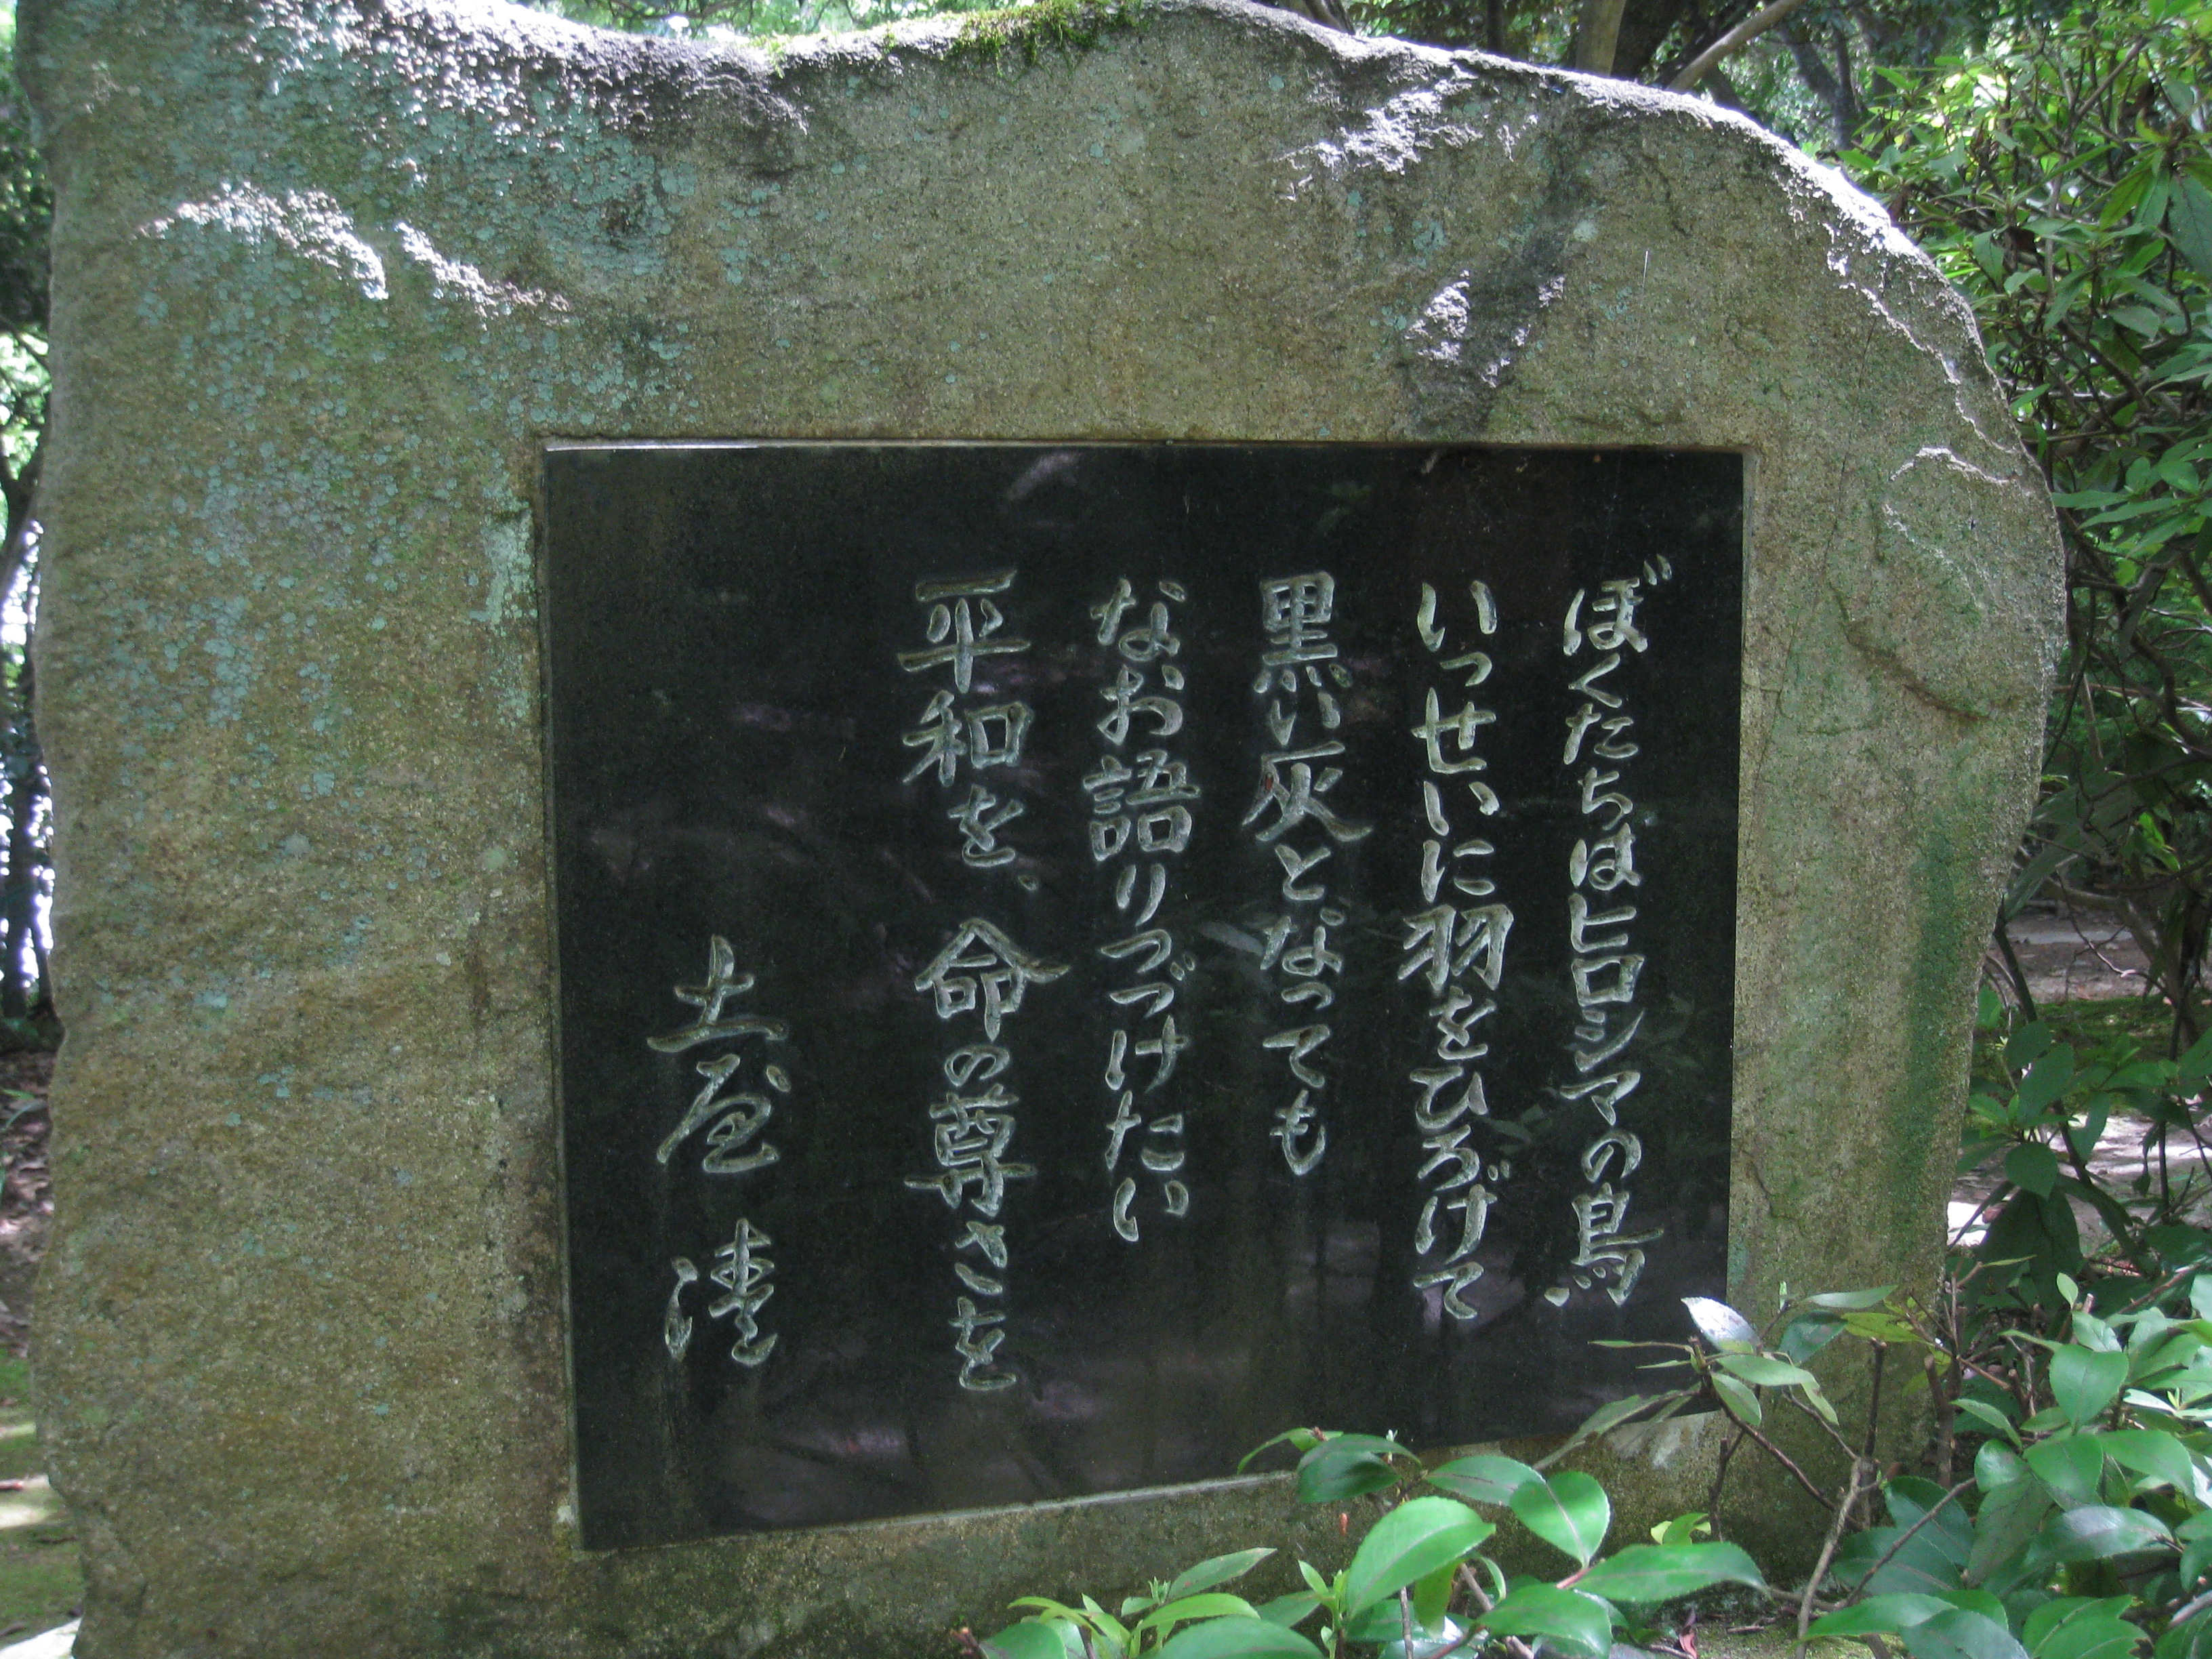 ぼくたちはヒロシマの鳥
いっせいに羽をひろげて
黒い灰となっても
なお語りつづけたい
平和を、命の尊さを
土屋 清